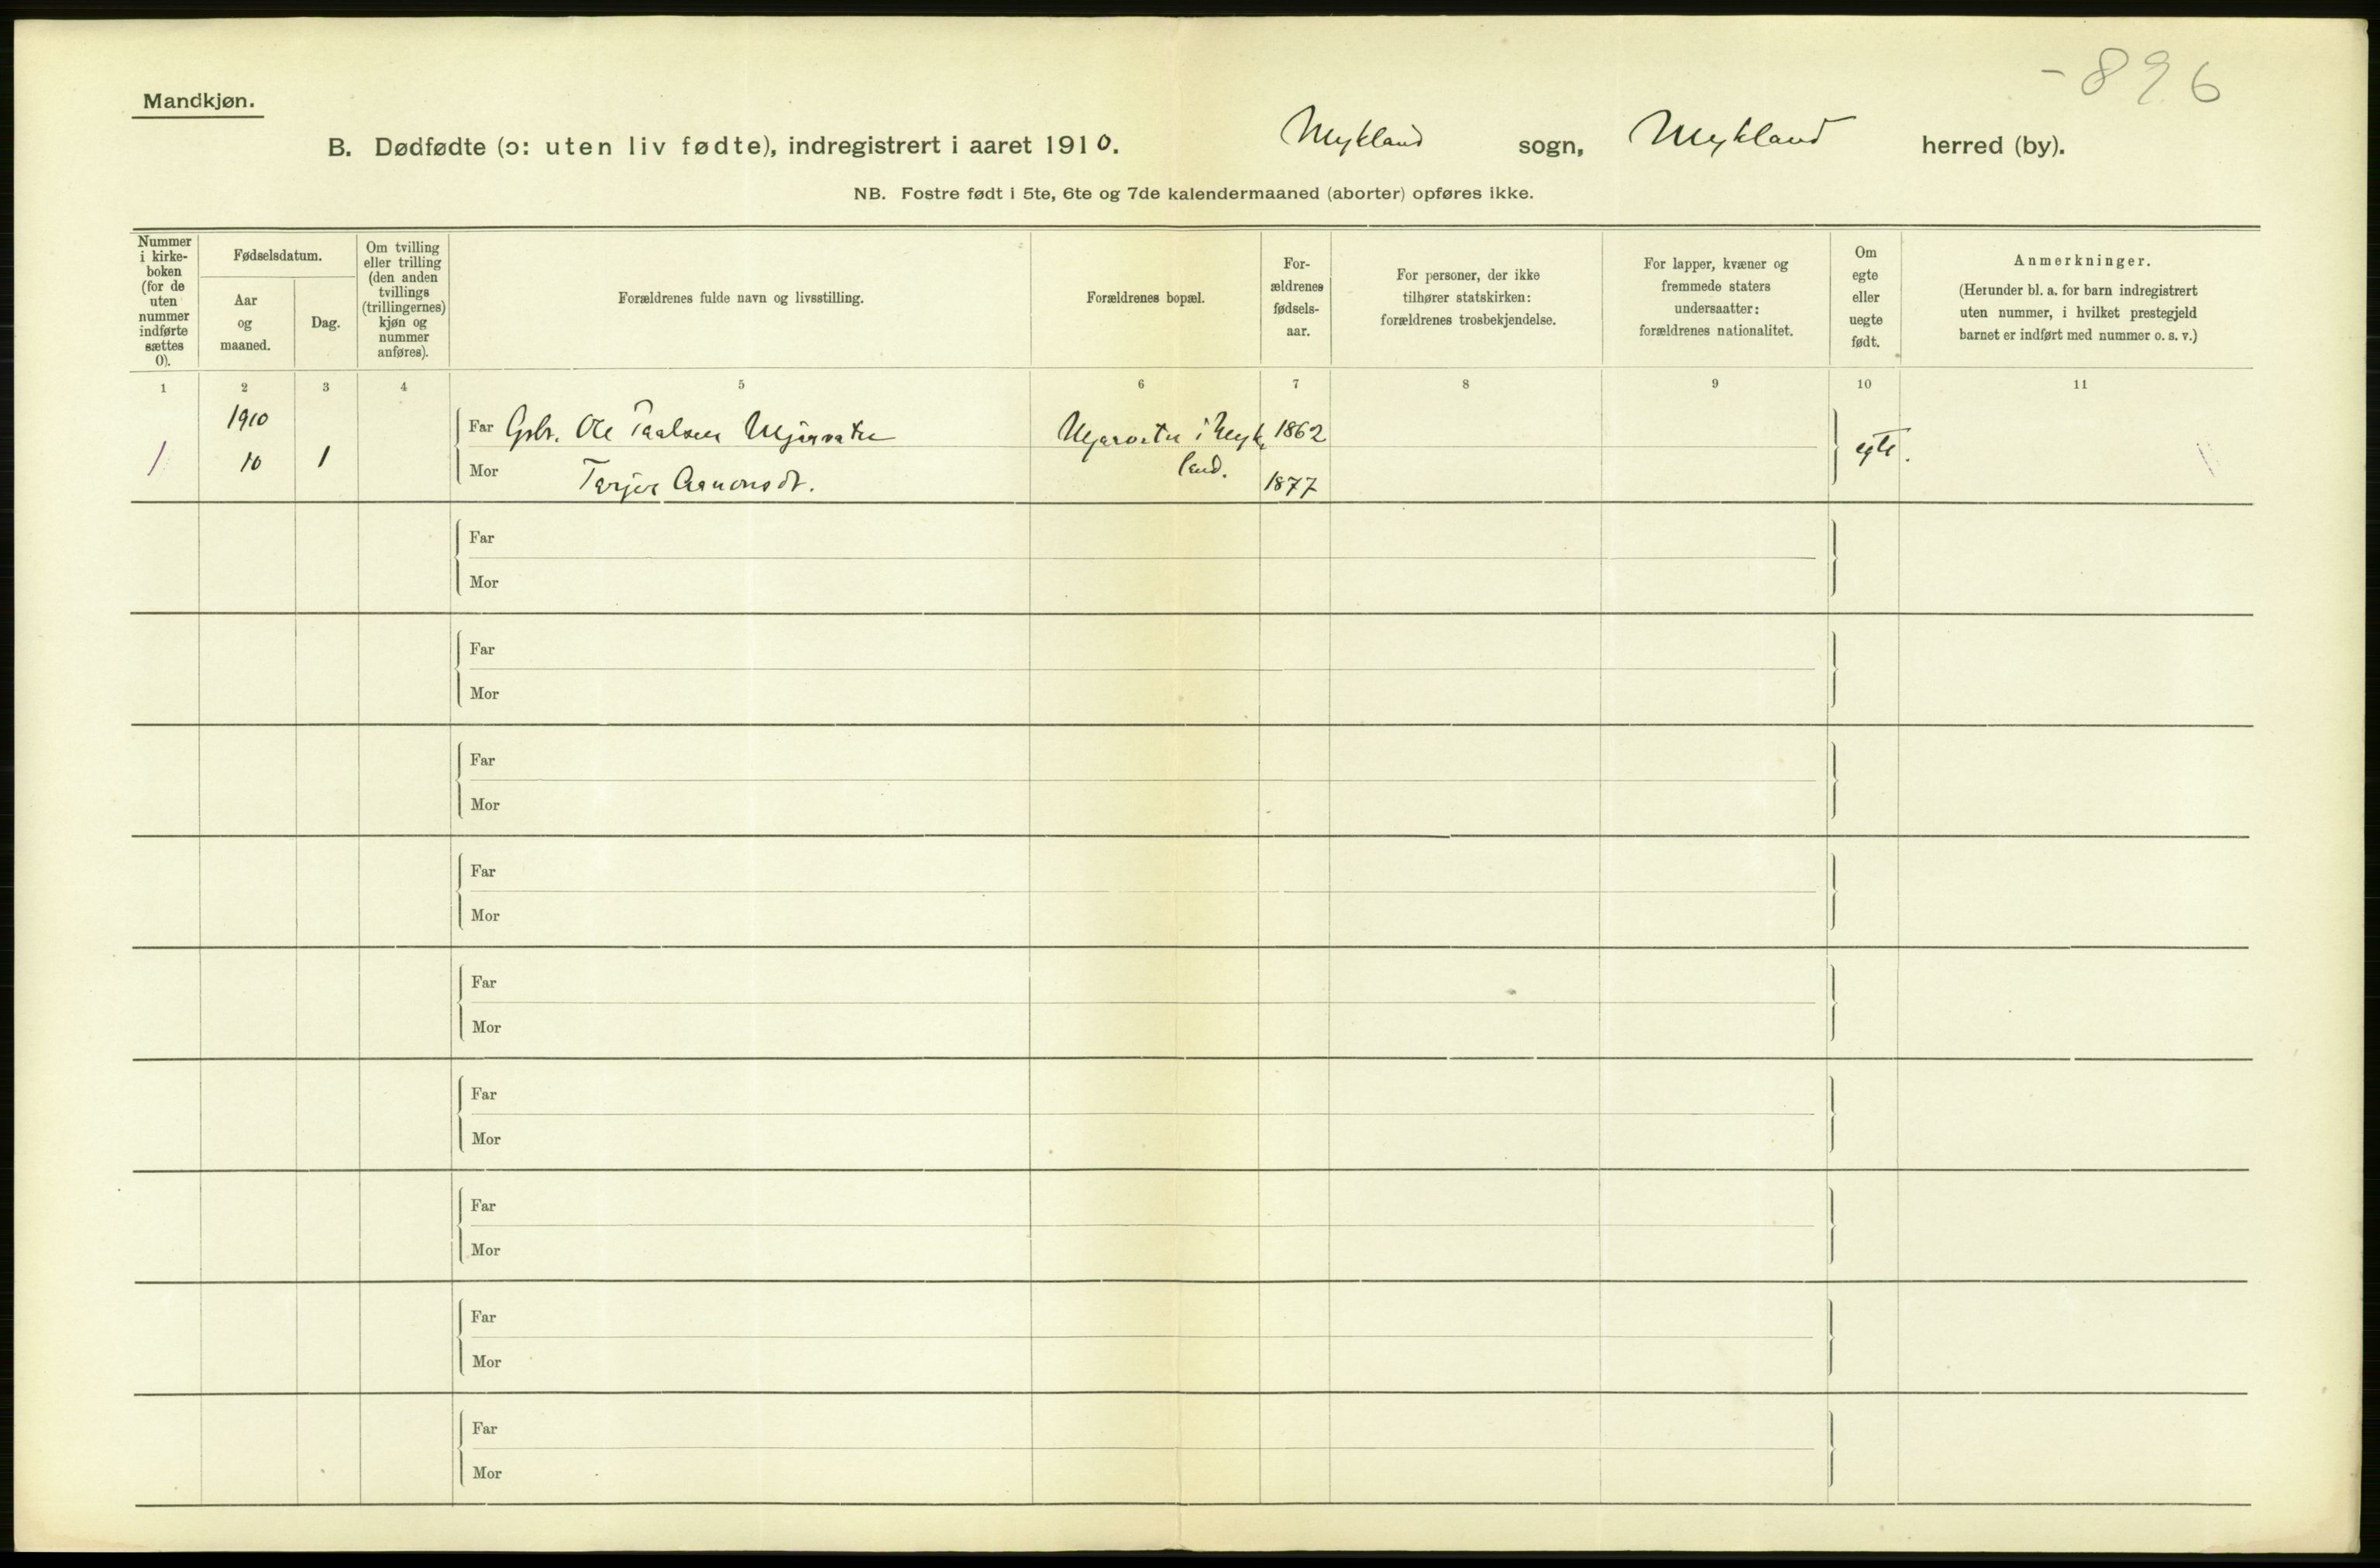 - 896
Mandkjøn.
B. Dødfødte (ɔ: uten liv fødte), indregistrert i aaret 1910. Mykland sogn, Mykland herred (by).
NB. Fostre født i 5te, 6te og 7de kalendermaaned (aborter) opføres ikke.
Nummer
i kirke-
boken
(for de
uten
nummer
indførte
sættes
0).
Fødselsdatum.
Aar
og
maaned.
Dag.
Om tvilling
eller trilling
(den anden
tvillings
(trillingernes)
kjøn og
nummer
anføres).
Forældrenes fulde navn og livsstilling.
Forældrenes bopæl.
For-
ældrenes
fødsels-
aar.
For personer, der ikke
tilhører statskirken:
forældrenes trosbekjendelse.
For lapper, kvæner og
fremmede staters
undersaatter:
forældrenes nationalitet.
Om
egte
eller
uegte
født.
Anmerkninger.
(Herunder bl. a. for barn indregistrert
uten nummer, i hvilket prestegjeld
barnet er indført med nummer o. s. v.)
1 2 3 4 5 6 7 8 9 10 11
1910
Far Gbr. Ole Taalsen Mjaavatn Mjaavatn i Myk 1862
1 10 1 egte.
Mor Terjer Aanonsdt. land. 1877
Far
Mor
Far
Mor
Far
Mor
Far
Mor
Far
Mor
Far
Mor
Far
Mor
Far
Mor
Far
Mor